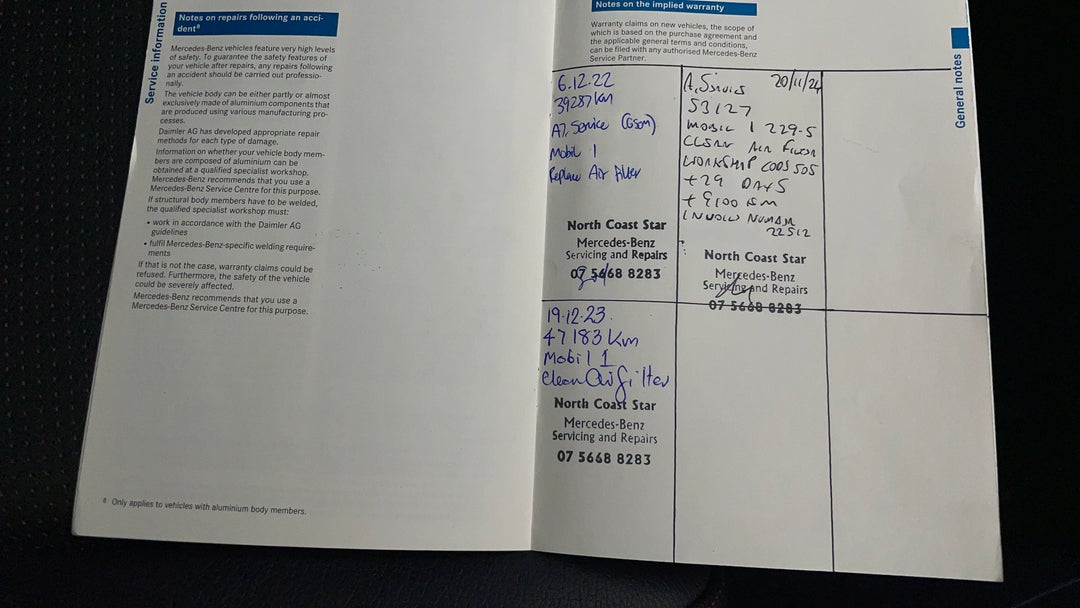 Service information
Notes on repairs following an acci-
dent⁸
Mercedes-Benz vehicles feature very high levels
of safety. To guarantee the safety features of
your vehicle after repairs, any repairs following
an accident should be carried out professio-
nally.
The vehicle body can be either partly or almost
exclusively made of aluminium components that
are produced using various manufacturing pro-
cesses.
Daimler AG has developed appropriate repair
methods for each type of damage.
Information on whether your vehicle body mem-
bers are composed of aluminium can be
obtained at a qualified specialist workshop.
Mercedes-Benz recommends that you use a
Mercedes-Benz Service Centre for this purpose.
If structural body members have to be welded,
the qualified specialist workshop must:
• work in accordance with the Daimler AG
guidelines
• fulfil Mercedes-Benz-specific welding require-
ments
If that is not the case, warranty claims could be
refused. Furthermore, the safety of the vehicle
could be severely affected.
Mercedes-Benz recommends that you use a
Mercedes-Benz Service Centre for this purpose.
⁸ Only applies to vehicles with aluminium body members.
Notes on the implied warranty
Warranty claims on new vehicles, the scope of
which is based on the purchase agreement and
the applicable general terms and conditions,
can be filed with any authorised Mercedes-Benz
Service Partner.
General notes
6.12.22
39287 Km
A7, Service
Mobil 1
Replace Air Filter
North Coast Star
Mercedes-Benz
Servicing and Repairs
07 5668 8283
19.12.23
47183 Km
Mobil 1
Clean Air filter
North Coast Star
Mercedes-Benz
Servicing and Repairs
07 5668 8283
A, Service 20/11/24
53127
MOBIL 1 229-5
CLEAN AIR FILTER
WORKSHOP CODE 505
+29 DAYS
+9100 KM
INVOICE NUMBER
22512
North Coast Star
Mercedes-Benz
Servicing and Repairs
07 5668 8283